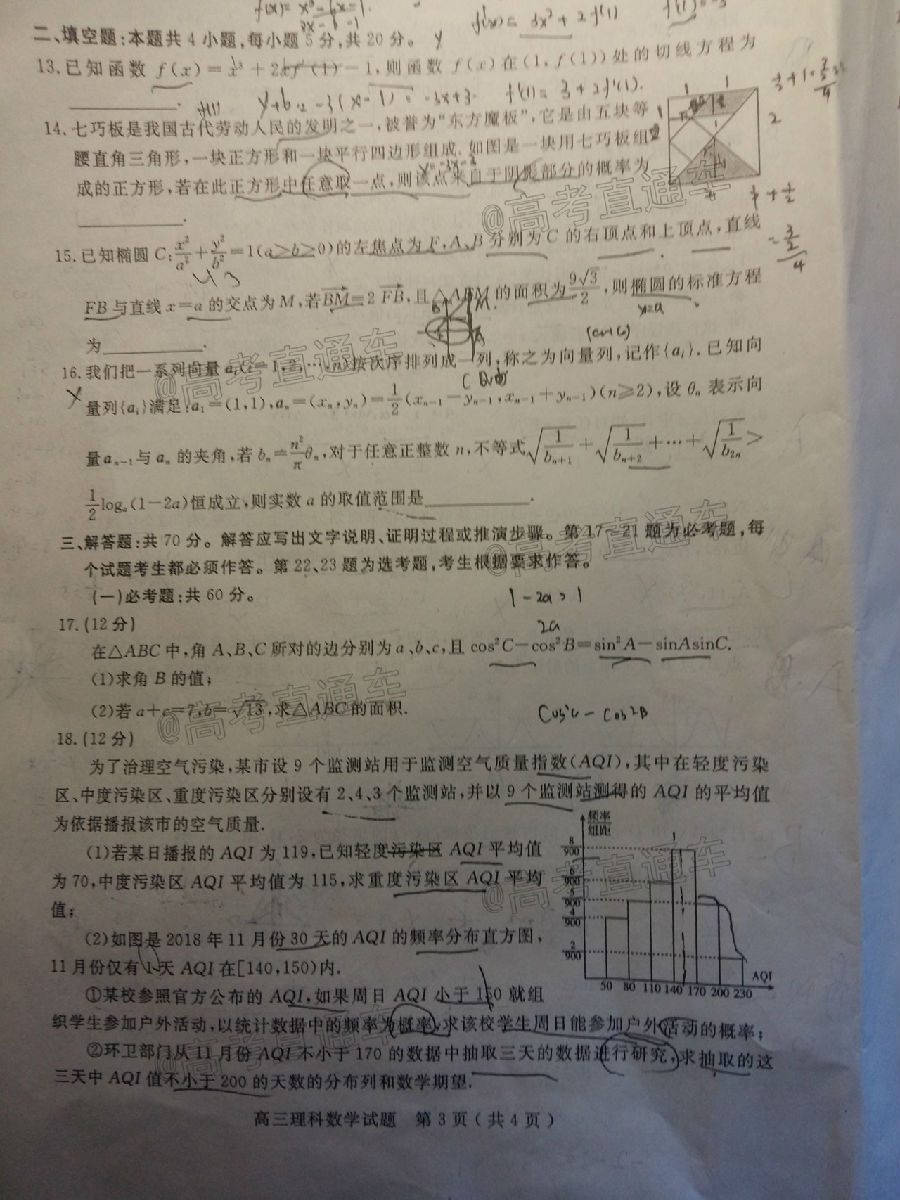 f(x)=x³-6x-1.
f'(x)=3x²+2f'(1)
f'(1)=-3
二、填空题:本题共4小题,每小题5分,共20分。
13.已知函数 f(x)=x³+2xf'(1)-1,则函数 f(x)在(1,f(1))处的切线方程为
________.
y+6=-3(x-1)=-3x+3
f'(1)=3+2f'(1).
14.七巧板是我国古代劳动人民的发明之一,被誉为“东方魔板”,它是由五块等
腰直角三角形,一块正方形和一块平行四边形组成.如图是一块用七巧板组
成的正方形,若在此正方形中任意取一点,则该点来自于阴影部分的概率为
________.
15.已知椭圆 C:x²/a²+y²/b²=1(a>b>0)的左焦点为F,A、B分别为C的右顶点和上顶点,直线
FB与直线 x=a的交点为M,若BM=2FB,且△ABM的面积为9√3/2,则椭圆的标准方程
为________.
16.我们把一系列向量 aᵢ(i=1,2,…,n)按次序排列成一列,称之为向量列,记作{aᵢ}.已知向
量列{aᵢ}满足:a₁=(1,1),aₙ=(xₙ,yₙ)=1/2(xₙ₋₁-yₙ₋₁,xₙ₋₁+yₙ₋₁)(n≥2),设 θₙ 表示向
量aₙ₋₁与aₙ的夹角,若bₙ=n²/π θₙ,对于任意正整数n,不等式√(1/bₙ₊₁)+√(1/bₙ₊₂)+…+√(1/b₂ₙ)>
1/2 logₐ(1-2a)恒成立,则实数a的取值范围是________.
三、解答题:共70分。解答应写出文字说明、证明过程或推演步骤。第17~21题为必考题,每
个试题考生都必须作答。第22、23题为选考题,考生根据要求作答。
(一)必考题:共60分。
1-2a>1
2a
17.(12分)
在△ABC中,角A、B、C所对的边分别为a、b、c,且 cos²C-cos²B=sin²A-sinAsinC.
(1)求角B的值;
(2)若a+c=7,b=√13,求△ABC的面积.
cos²C-cos²B
18.(12分)
为了治理空气污染,某市设9个监测站用于监测空气质量指数(AQI),其中在轻度污染
区、中度污染区、重度污染区分别设有2、4、3个监测站,并以9个监测站测得的AQI的平均值
为依据播报该市的空气质量.
(1)若某日播报的AQI为119,已知轻度污染区AQI平均值
为70,中度污染区AQI平均值为115,求重度污染区AQI平均
值;
(2)如图是2018年11月份30天的AQI的频率分布直方图,
11月份仅有1天AQI在[140,150)内.
①某校参照官方公布的AQI,如果周日AQI小于150就组
织学生参加户外活动,以统计数据中的频率为概率,求该校学生周日能参加户外活动的概率;
②环卫部门从11月份AQI不小于170的数据中抽取三天的数据进行研究,求抽取的这
三天中AQI值不小于200的天数的分布列和数学期望.
频率
组距
8/900
6/900
5/900
4/900
2/900
50 80 110 140 170 200 230
AQI
高三理科数学试题 第3页(共4页)
@高考直通车
@高考直通车
@高考直通车
@高考直通车
@高考直通车
@高考直通车